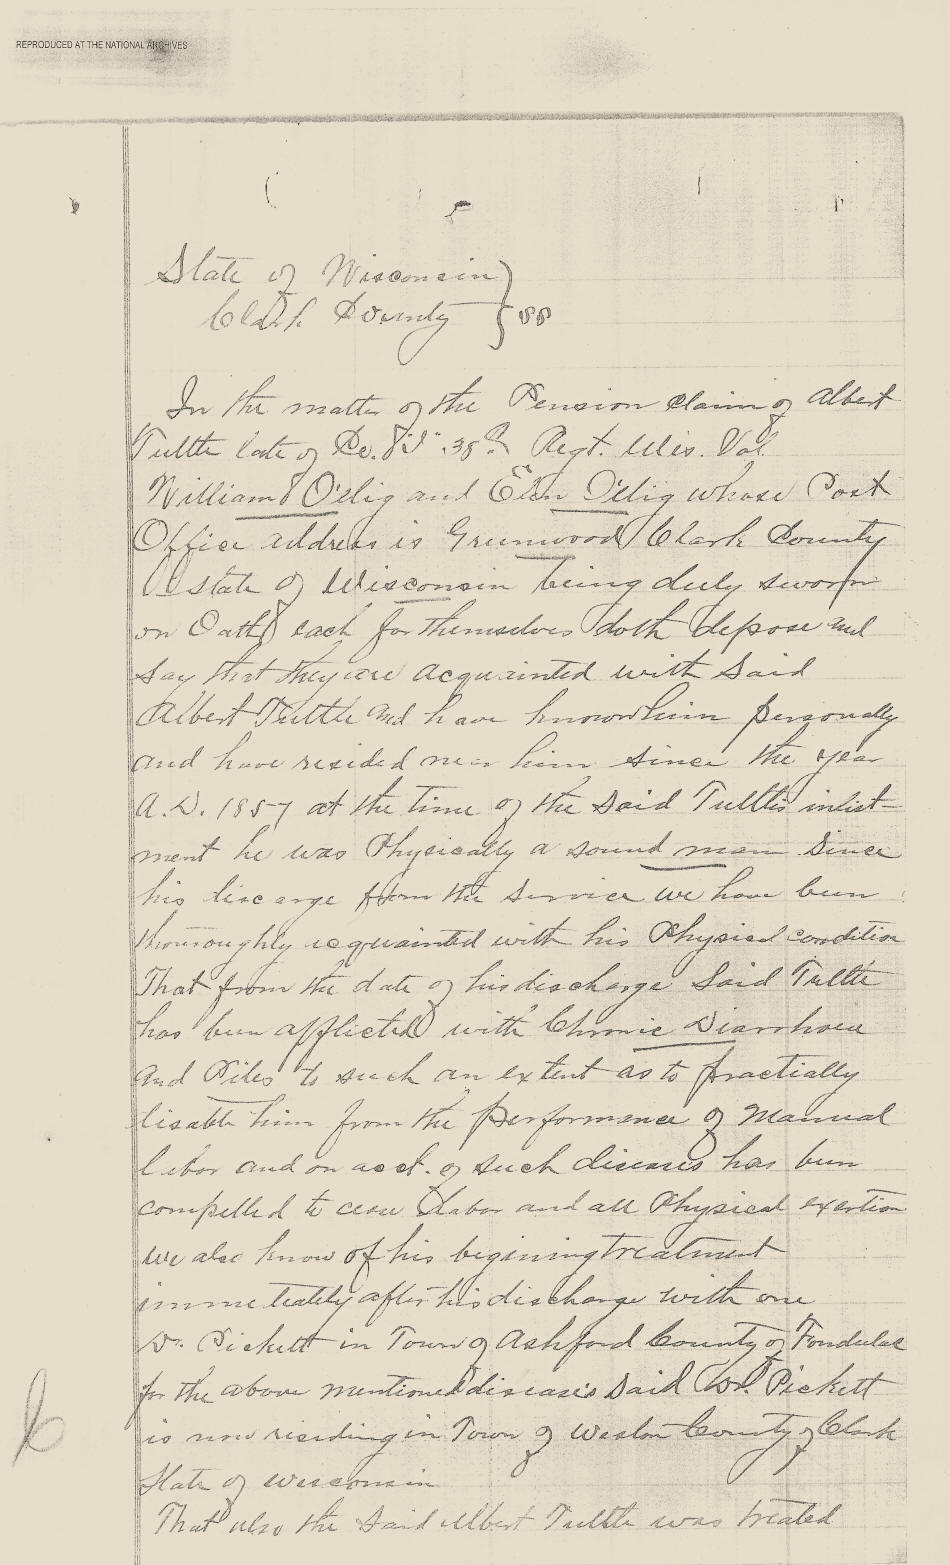 REPRODUCED AT THE NATIONAL ARCHIVES
State of Wisconsin
Clark County } SS
In the matter of the Pension claim of Albert
Tuttle late of Co. "I" 38th Regt. Wis. Vol.
William O'elig and Elen O'elig whose Post
Office address is Greenwood Clark County
State of Wisconsin being duly sworn
on Oath each for themselves doth depose and
say that they are acquainted with Said
Albert Tuttle and have known him personally
and have resided near him since the year
A.D. 1857 at the time of the Said Tuttles inlist-
ment he was Physically a sound man Since
his discarge from the Service we have been
thouroughly acquainted with his Physical condition
That from the date of his discharge Said Tuttle
has been afflicted with Chronic Diarrhoea
and Piles to such an extent as to practially
disable him from the performance of Manual
labor and on acct. of such diseases has been
compelled to cease labor and all Physical exertion
we also know of his begining treatment
immeteately after his discharge with one
Dr. Pickett in Town of Ashford County of Fondulac
for the above mentioned diseases Said Dr. Pickett
is now residing in Town of Weston County of Clark
State of Wisconsin
That also the Said Albert Tuttle was treated